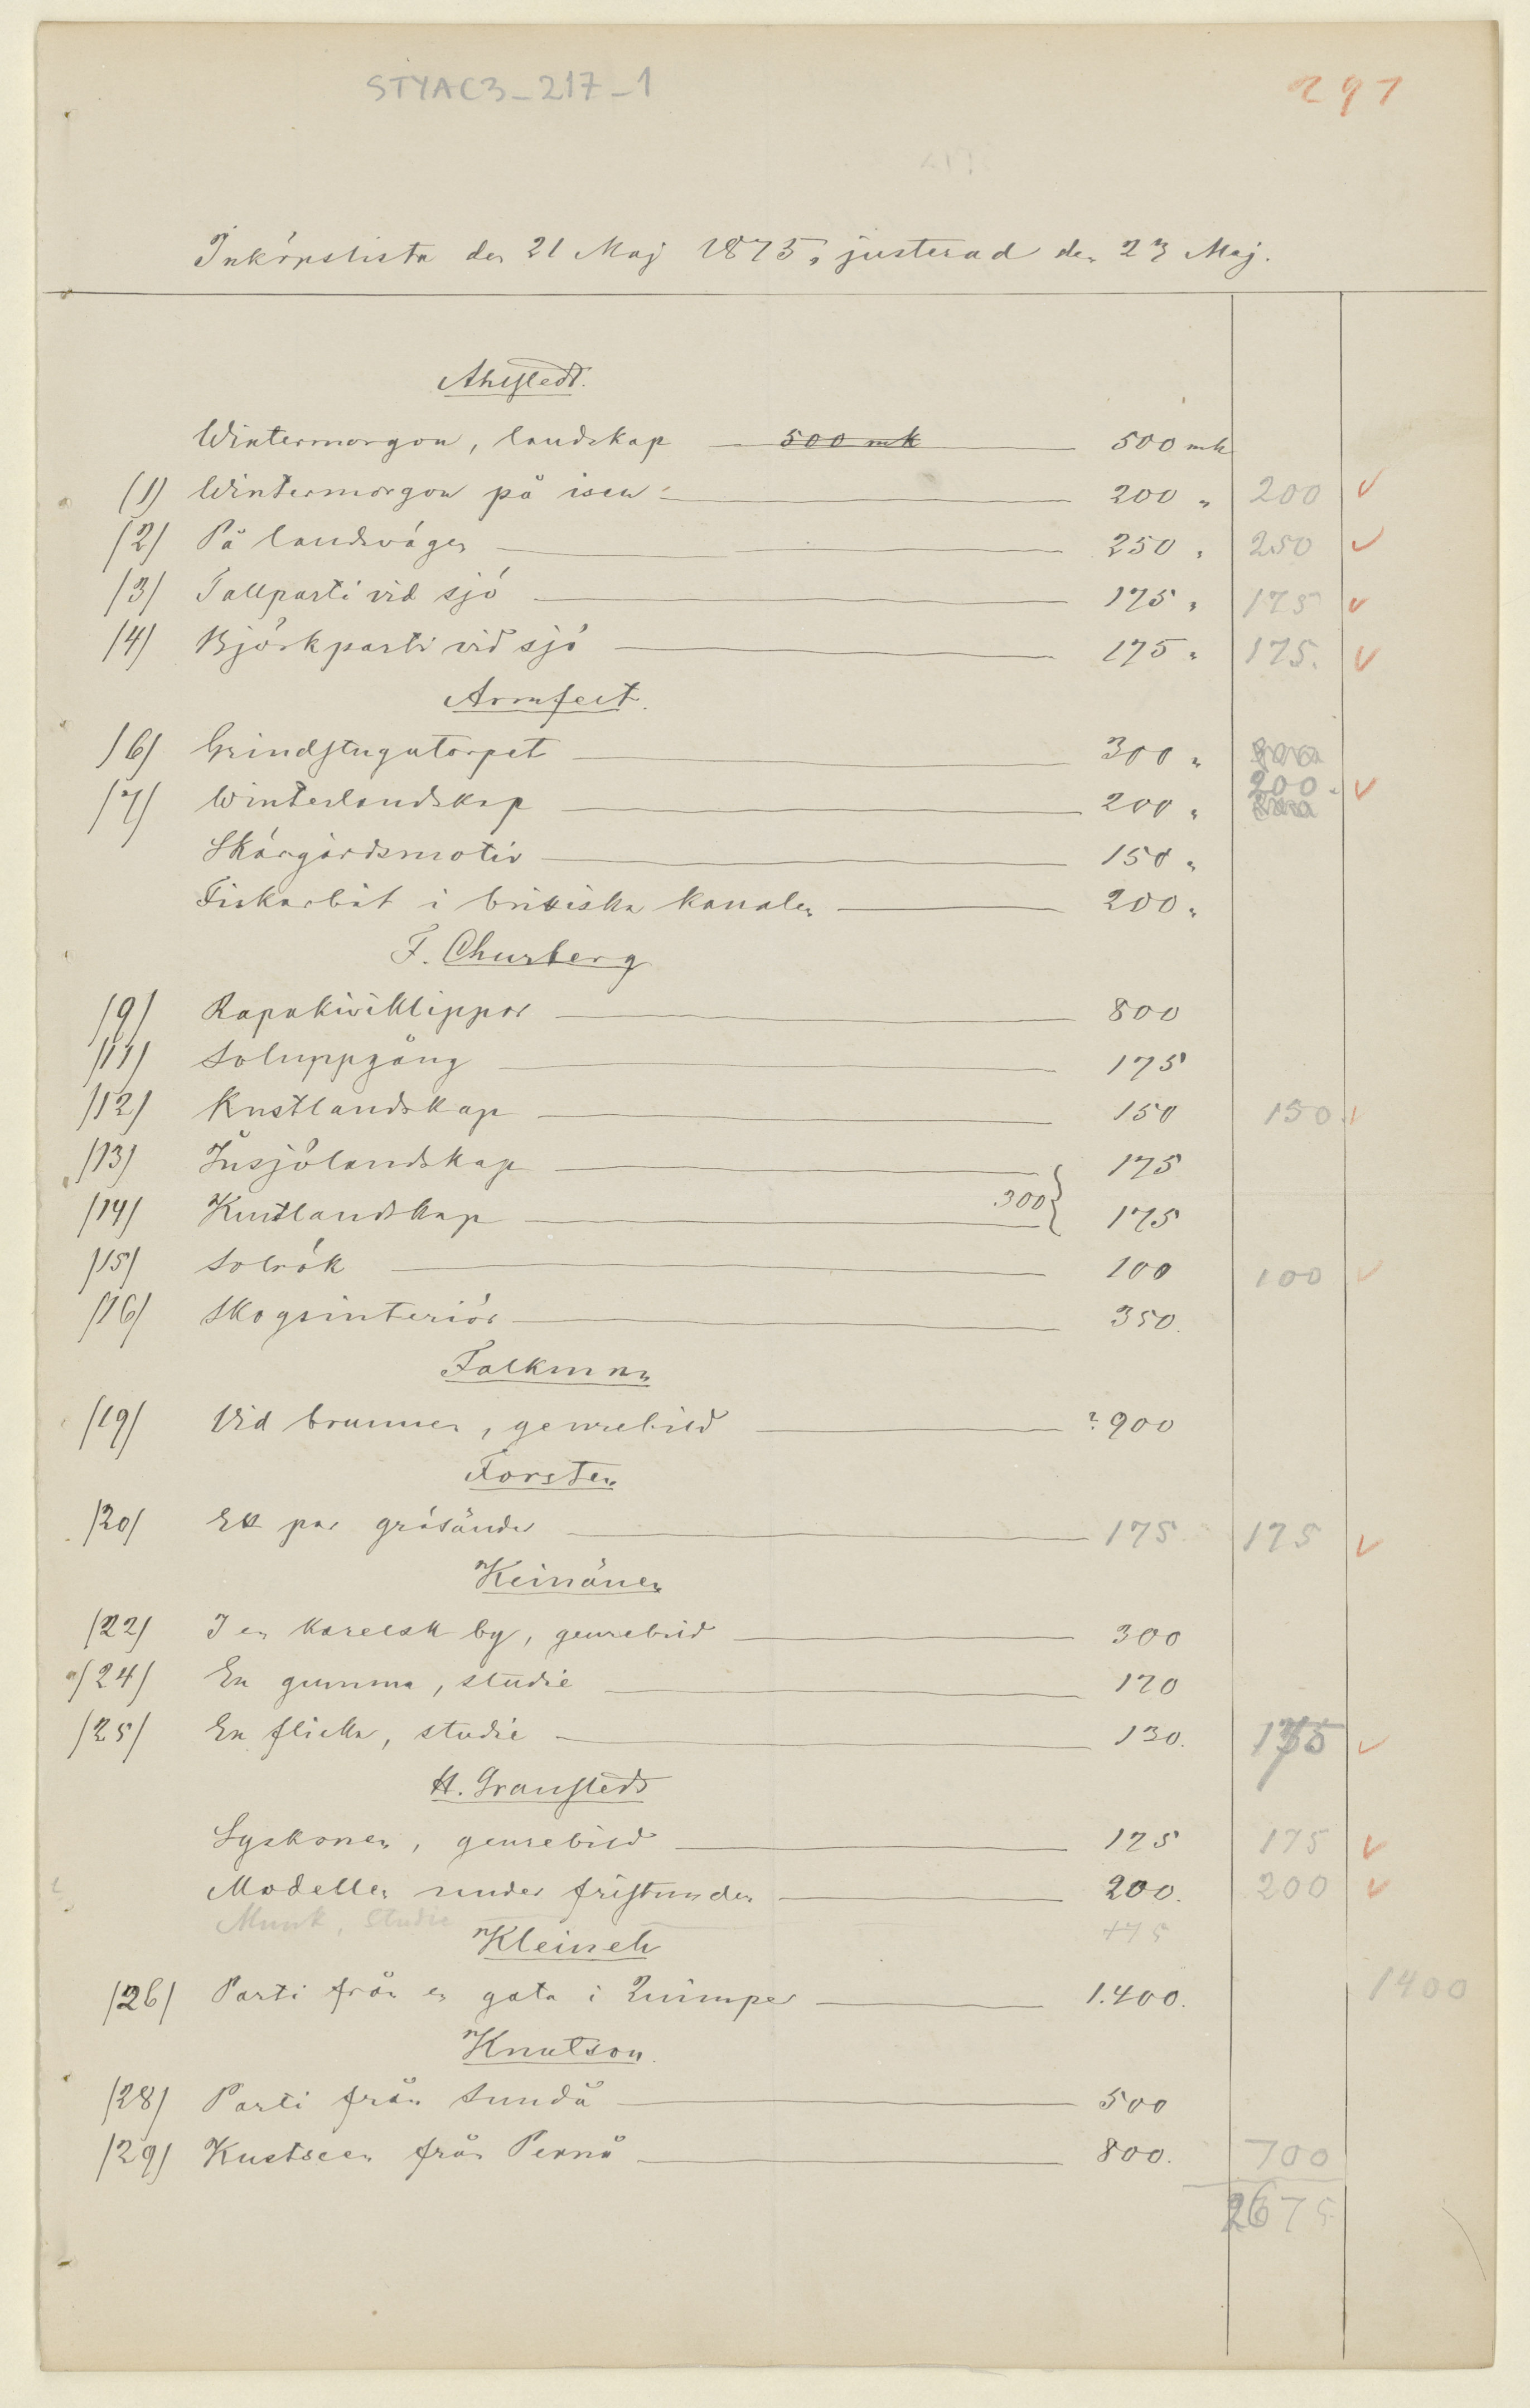 STYAC3_217_1
291
Inköpslista den 21 Maj 1875, justerad den 23 Maj.
Ahlstedt.
Wintermorgon, landskap 500 mk 500 mk
(1) Wintermorgon på isen 200 " 200 ✓
/2/ På landsvägen 250 " 250 ✓
/3/ Tallparti vid sjö 175 " 175 ✓
/4/ Björkparti vid sjö 175 " 175. ✓
Armfelt.
/6/ Grindstugutorpet 300 "
/7/ Winterlandskap 200 " 200 ✓
Skärgårdsmotiv 150 "
Fiskarbåt i brittiska kanalen 200 "
F. Churberg
/9/ Rapakiviklippor 800
/11/ Soluppgång 175
/12/ Kustlandskap 150 150 ✓
/13/ Insjölandskap 175
/14/ Kustlandskap 300 } 175
/15/ Solrök 100 100 ✓
/16/ Skogsinteriör 350.
Falkman
/19/ Vid brunnen, genrebild ? 900
Forsten
/20/ Ett par gräsänder 175 175 ✓
Keinänen
/22/ I en karelsk by, genrebild 300
/24/ En gumma, studie 120
/25/ En flicka, studie 130. ✓
H. Granstedt
Syskonen, genrebild 175 175 ✓
Modellen under fristunden 200. 200 ✓
Munk, studie 175
Kleineh
/26/ Parti från en gata i Quimper 1.400. 1400
Knutson.
/28/ Parti från Sundö 500
/29/ Kustscen från Pernå 800. 700
2675